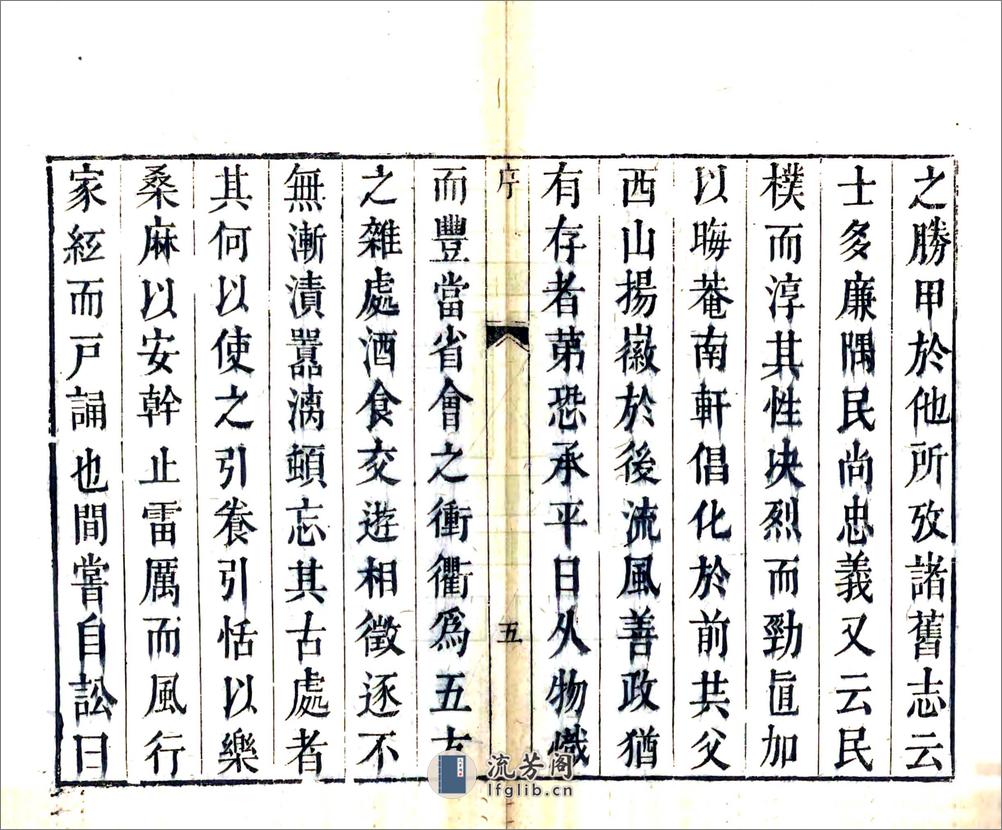 之勝甲於他所攷諸舊志云
士多廉隅民尚忠義又云民
樸而淳其性決烈而勁直加
以晦菴南軒倡化於前其父
西山揚徽於後流風善政猶
有存者第恐承平日久物熾
序
五
而豐當省會之衝衢爲五方
之雜處酒食交遊相徵逐不
無漸漬囂漓頓忘其古處者
其何以使之引養引恬以樂
桑麻以安幹止雷厲而風行
家絃而戸誦也間嘗自訟曰
流芳阁
lfglib.cn